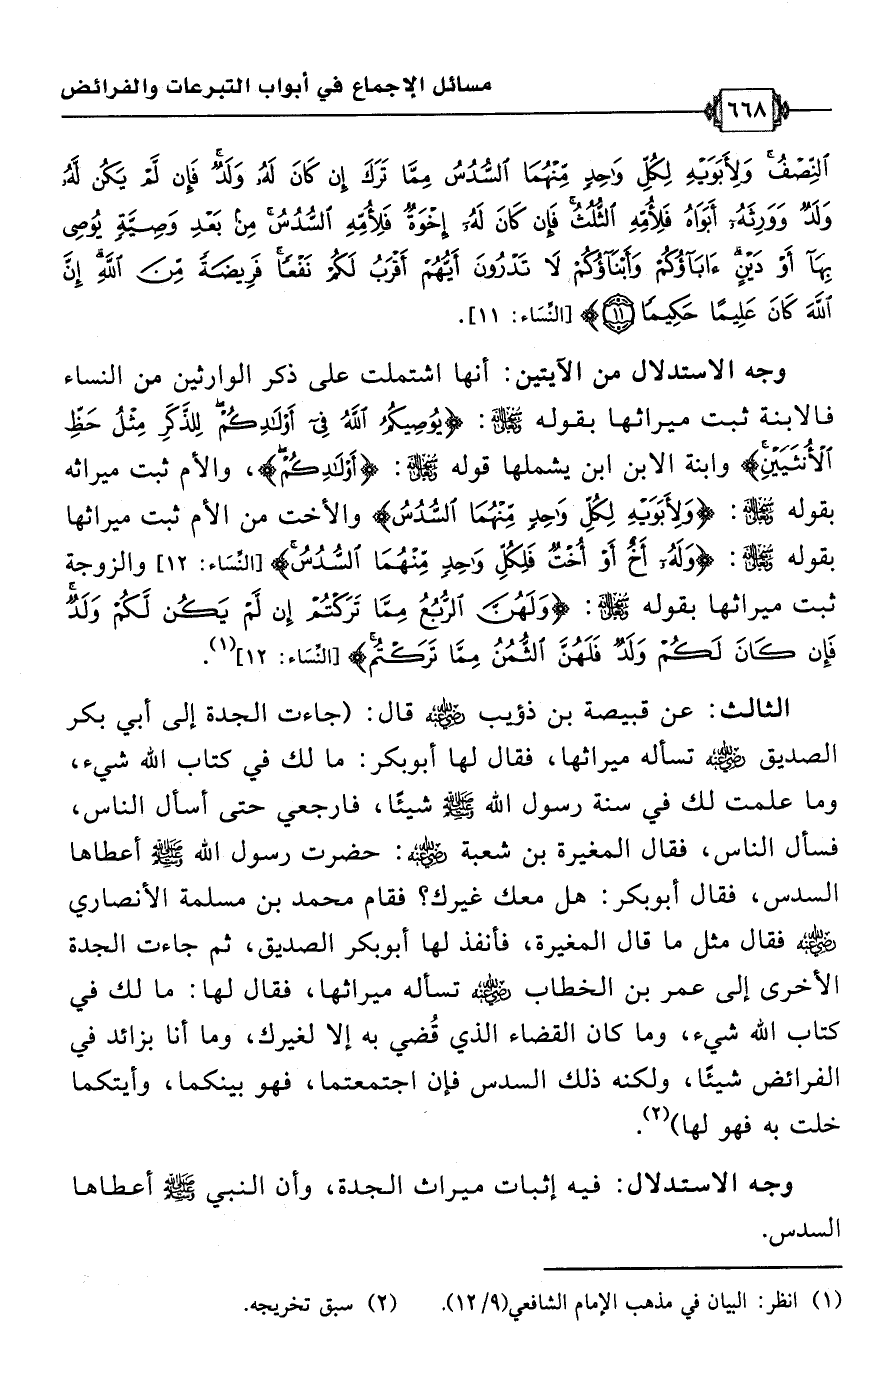 مسائل الإجماع في أبواب التبرعات والفرائض
٦٦٨
ٱلنِّصۡفُۚ وَلِأَبَوَيۡهِ لِكُلِّ وَٰحِدٖ مِّنۡهُمَا ٱلسُّدُسُ مِمَّا تَرَكَ إِن كَانَ لَهُۥ وَلَدٞۚ فَإِن لَّمۡ يَكُن لَّهُۥ
وَلَدٞ وَوَرِثَهُۥٓ أَبَوَاهُ فَلِأُمِّهِ ٱلثُّلُثُۚ فَإِن كَانَ لَهُۥٓ إِخۡوَةٞ فَلِأُمِّهِ ٱلسُّدُسُۚ مِنۢ بَعۡدِ وَصِيَّةٖ يُوصِي
بِهَآ أَوۡ دَيۡنٍۗ ءَابَآؤُكُمۡ وَأَبۡنَآؤُكُمۡ لَا تَدۡرُونَ أَيُّهُمۡ أَقۡرَبُ لَكُمۡ نَفۡعٗاۚ فَرِيضَةٗ مِّنَ ٱللَّهِۗ إِنَّ
ٱللَّهَ كَانَ عَلِيمًا حَكِيمٗا ١١﴾ [النِّسَاء: ١١].
وجه الاستدلال من الآيتين: أنها اشتملت على ذكر الوارثين من النساء
فالابنة ثبت ميراثها بقوله تعالى: ﴿يُوصِيكُمُ ٱللَّهُ فِيٓ أَوۡلَٰدِكُمۡۖ لِلذَّكَرِ مِثۡلُ حَظِّ
ٱلۡأُنثَيَيۡنِۚ﴾ وابنة الابن ابن يشملها قوله تعالى: ﴿أَوۡلَٰدِكُمۡۖ﴾، والأم ثبت ميراثه
بقوله تعالى: ﴿وَلِأَبَوَيۡهِ لِكُلِّ وَٰحِدٖ مِّنۡهُمَا ٱلسُّدُسُ﴾ والأخت من الأم ثبت ميراثها
بقوله تعالى: ﴿وَلَهُۥٓ أَخٌ أَوۡ أُخۡتٞ فَلِكُلِّ وَٰحِدٖ مِّنۡهُمَا ٱلسُّدُسُۚ﴾ [النِّسَاء: ١٢] والزوجة
ثبت ميراثها بقوله تعالى: ﴿وَلَهُنَّ ٱلرُّبُعُ مِمَّا تَرَكۡتُمۡ إِن لَّمۡ يَكُن لَّكُمۡ وَلَدٞۚ
فَإِن كَانَ لَكُمۡ وَلَدٞ فَلَهُنَّ ٱلثُّمُنُ مِمَّا تَرَكۡتُمۚ﴾ [النِّسَاء: ١٢](١).
الثالث: عن قبيصة بن ذؤيب رضي الله عنه قال: (جاءت الجدة إلى أبي بكر
الصديق رضي الله عنه تسأله ميراثها، فقال لها أبوبكر: ما لك في كتاب الله شيء،
وما علمت لك في سنة رسول الله ﷺ شيئًا، فارجعي حتى أسأل الناس،
فسأل الناس، فقال المغيرة بن شعبة رضي الله عنه: حضرت رسول الله ﷺ أعطاها
السدس، فقال أبوبكر: هل معك غيرك؟ فقام محمد بن مسلمة الأنصاري
رضي الله عنه فقال مثل ما قال المغيرة، فأنفذ لها أبوبكر الصديق، ثم جاءت الجدة
الأخرى إلى عمر بن الخطاب رضي الله عنه تسأله ميراثها، فقال لها: ما لك في
كتاب الله شيء، وما كان القضاء الذي قُضي به إلا لغيرك، وما أنا بزائد في
الفرائض شيئًا، ولكنه ذلك السدس فإن اجتمعتما، فهو بينكما، وأيتكما
خلت به فهو لها)(٢).
وجه الاستدلال: فيه إثبات ميراث الجدة، وأن النبي ﷺ أعطاها
السدس.
(١) انظر: البيان في مذهب الإمام الشافعي(١٢/٩). (٢) سبق تخريجه.